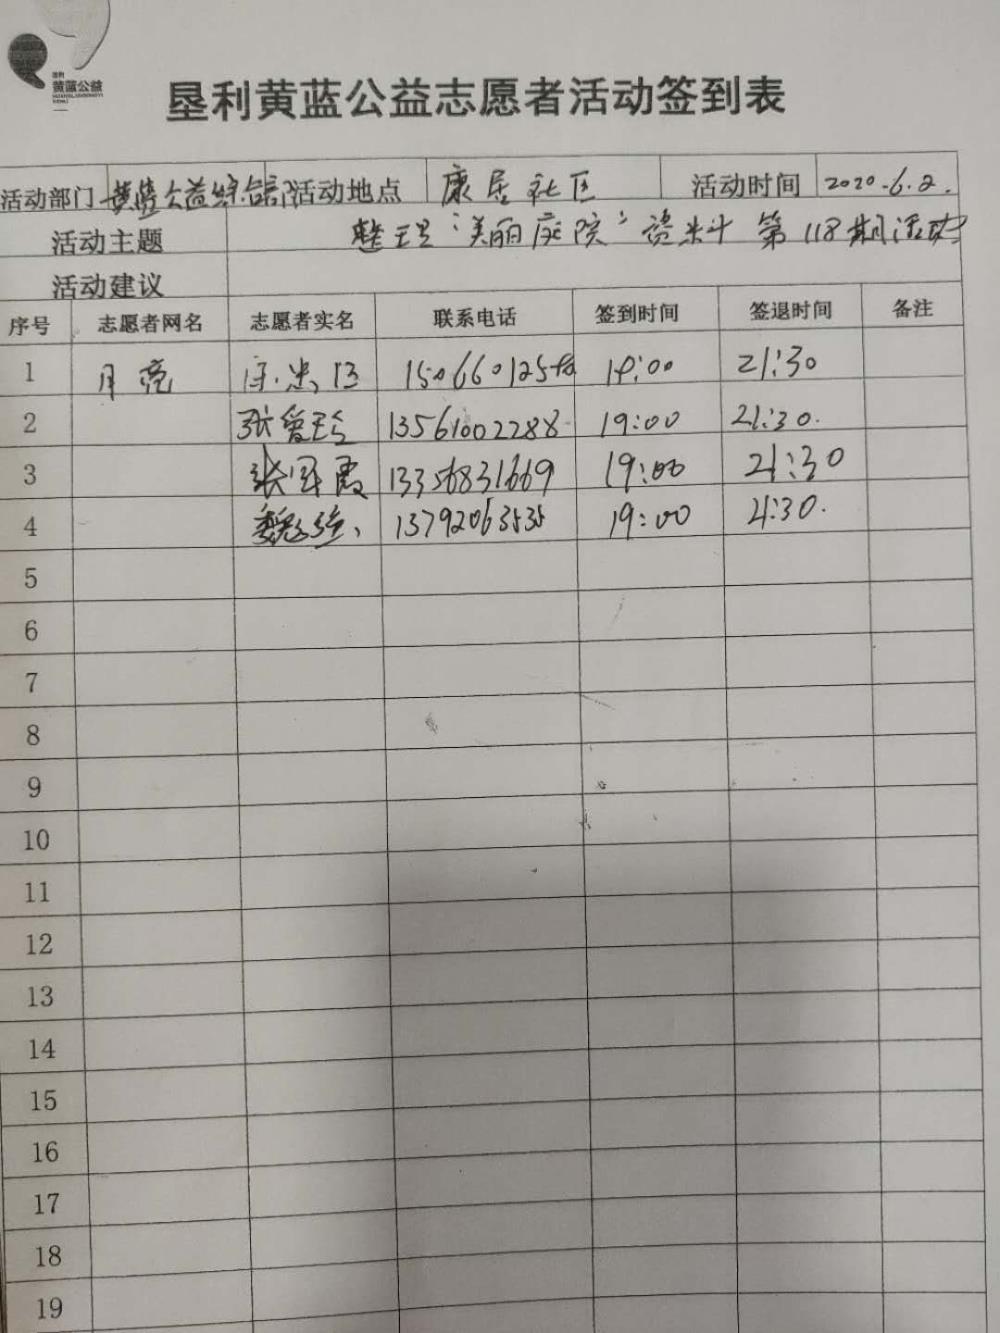 垦利
黄蓝公益
垦利黄蓝公益志愿者活动签到表
活动部门 黄蓝公益综合部 活动地点 康居社区 活动时间 2020.6.2.
活动主题 整理“美丽庭院”资料 第118期活动
活动建议
序号 志愿者网名 志愿者实名 联系电话 签到时间 签退时间 备注
1 月亮 19:00 21:30
2 张爱玲 13561002288 19:00 21:30.
3 张军霞 13356831669 19:00 21:30
4 魏强 13792063535 19:00 21:30.
5
6
7
8
9
10
11
12
13
14
15
16
17
18
19